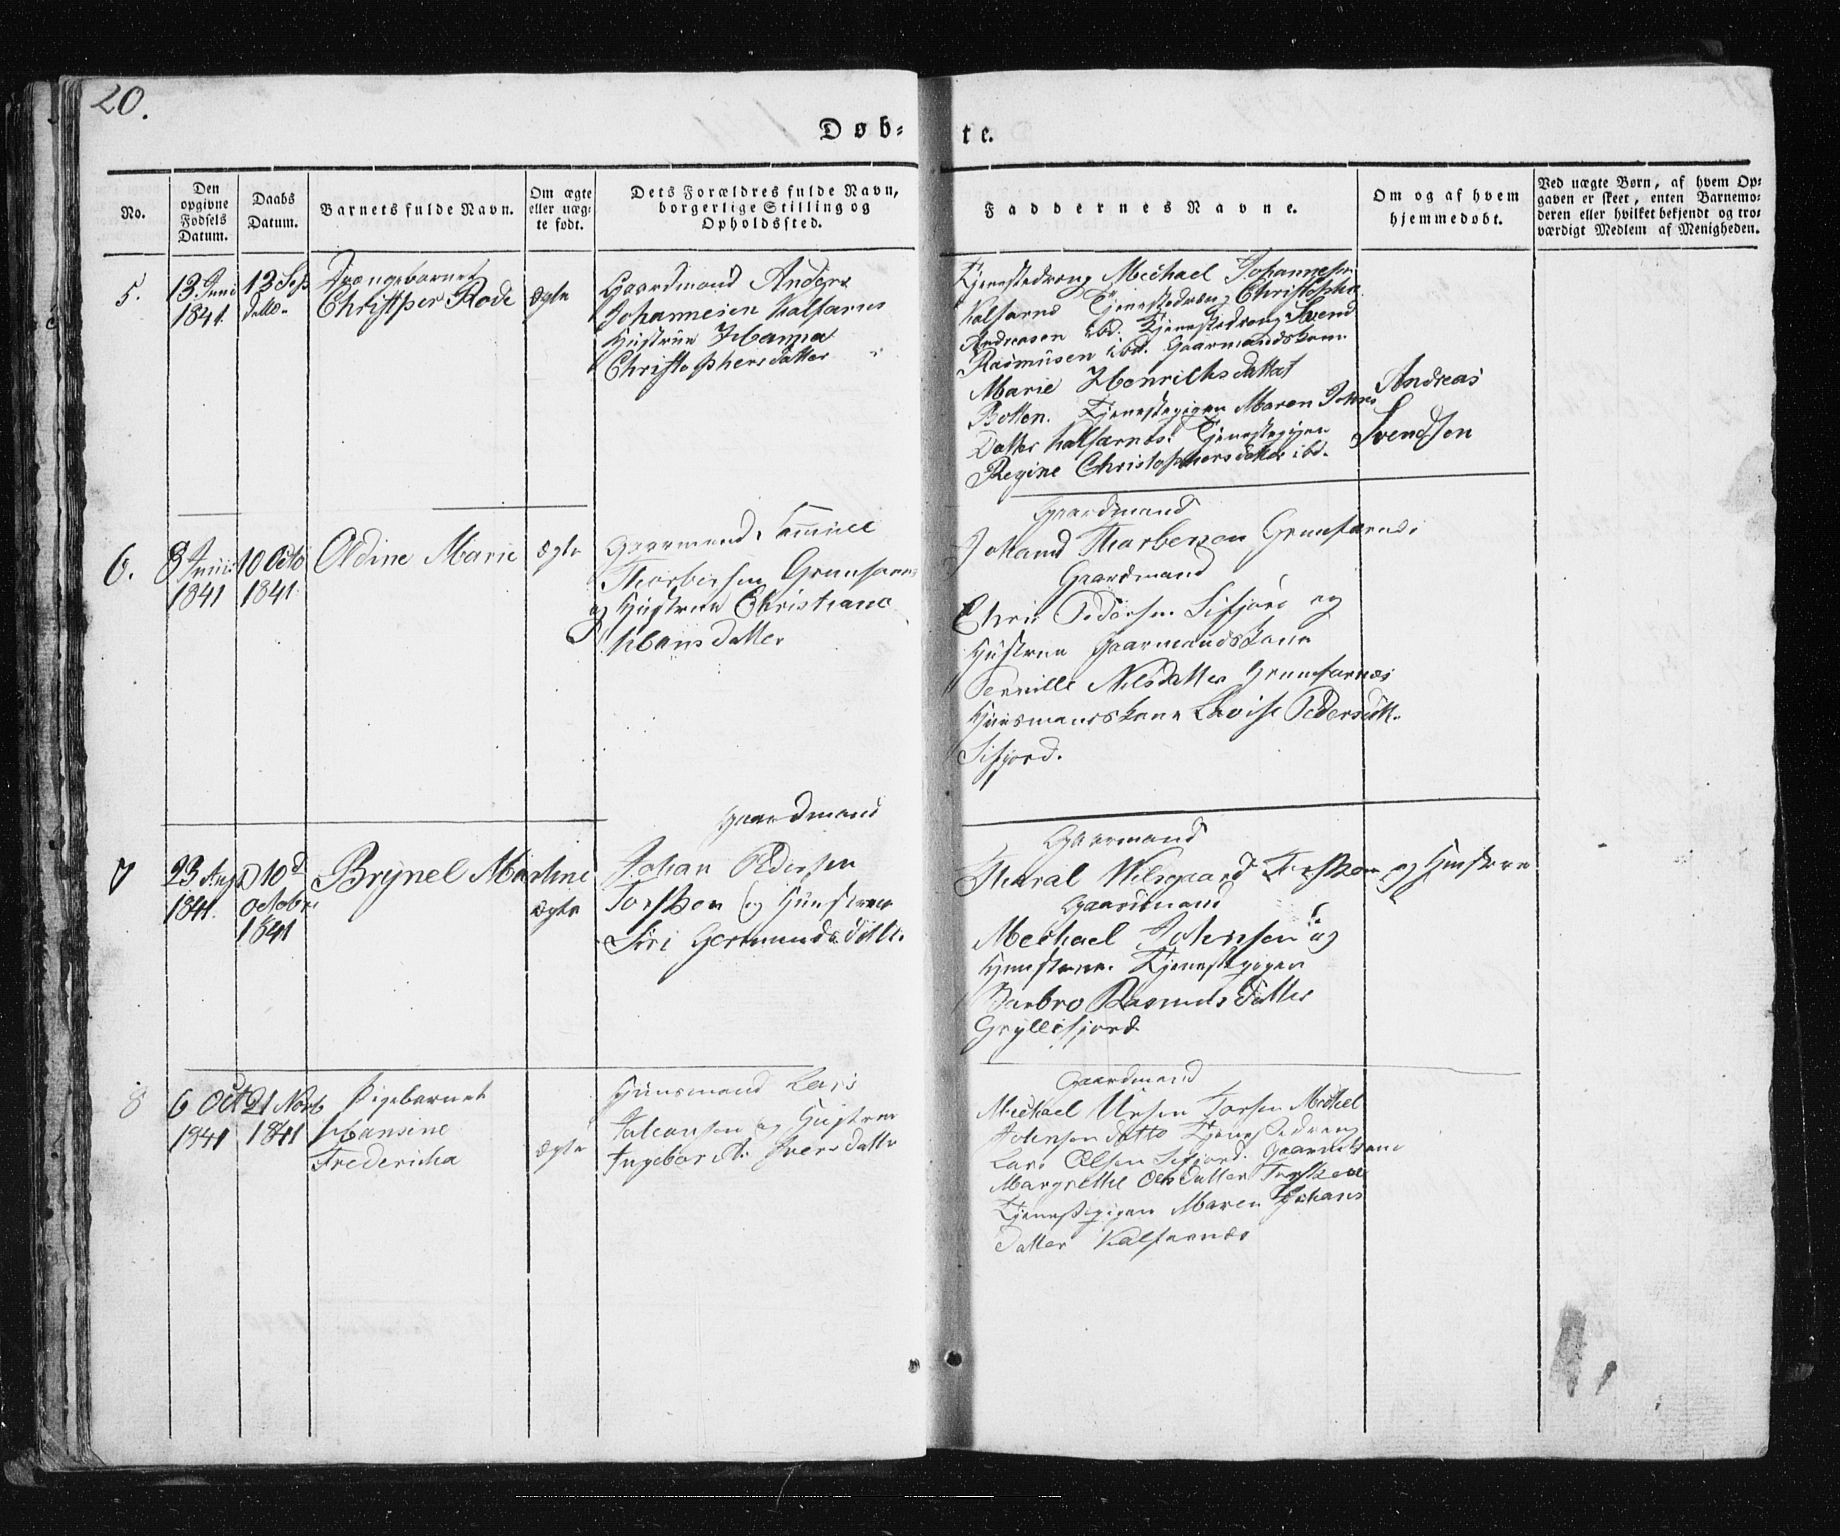 20.
Døb-
te.
No.
Den opgivne Fødsels Datum.
Daabs Datum.
Barnets fulde Navn.
Om ægte eller uæg-
te født.
Dets Forældres fulde Navn,
borgerlige Stilling og
Opholdssted.
Faddernes Navne.
Om og af hvem
hjemmedøbt.
Ved uægte Børn, af hvem Op-
gaven er skeet, enten Barnemo-
deren eller hvilket bekjendt og tro-
værdigt Medlem af Menigheden.
5.
13 Juni
1841.
12 Sep
Dette
Drængebarnet
Christper Rode
Ægte
Gaardmand Anders
Johannesen Kalfarnes
Hustrue Hanna
Christophersdatter
Tjenestedreng Mechael Johannesen
Kalfarnes Tjenestedreng Christopher
Andreasen ibd. Tjenestedreng Svend
Rasmusen ibd. Gaarmandskone
Marie Henrichsdatter
Botten. Tjenestepigen Maren Johns
Datter Kalfarnes. Tjenestepigen
Regine Christophersdatter ibd.
Andreas
Svendsen
6.
8 Junii
1841
10 Octo
1841
Oldine Marie
Ægte
Gaarmand
Thorbersen Grunfarnes
og Hustrue Christiane
Hansdatter
Gaardmand
Johand Thorbersen Grunfarnes
Gaardmand
Chris Pedersen Sifjord og
Hustrue Gaarmandskone
Pernille Nilsdatter Grunfarnes
Huusmandskone Lovise Pedersdatt.
Sifjord.
7
23 Aug
1841.
D 10d
Octobr
1841
Brynel Martine
Ægte
Gaardmand
Johan Pedersen
Torsken og Huustrue
Siri Germundsdatt.
Gaarmand
Nilsgaard Torsken og Huustrue
Gaardmand
Mechael Johnsen og
Huustrue. Tjenestepigen
Barbro Rasmusdatter
Gryllefjord
8
6 Oct
1841
21 Novb
1841
Pigebarnet
Hansine
Fredericha
Ægte
Huusmand Lars
Johansen og Hustrue
Ingebor Iversdatte
Gaardmand
Michael Torsken Michel
Johnsen ditto Tjenestedreng
Lars Olsen Sifjord. Gaardkone
Margrethe Olsdatter Torsken
Tjenestepigen Maren Johans
datter Kalfarnes